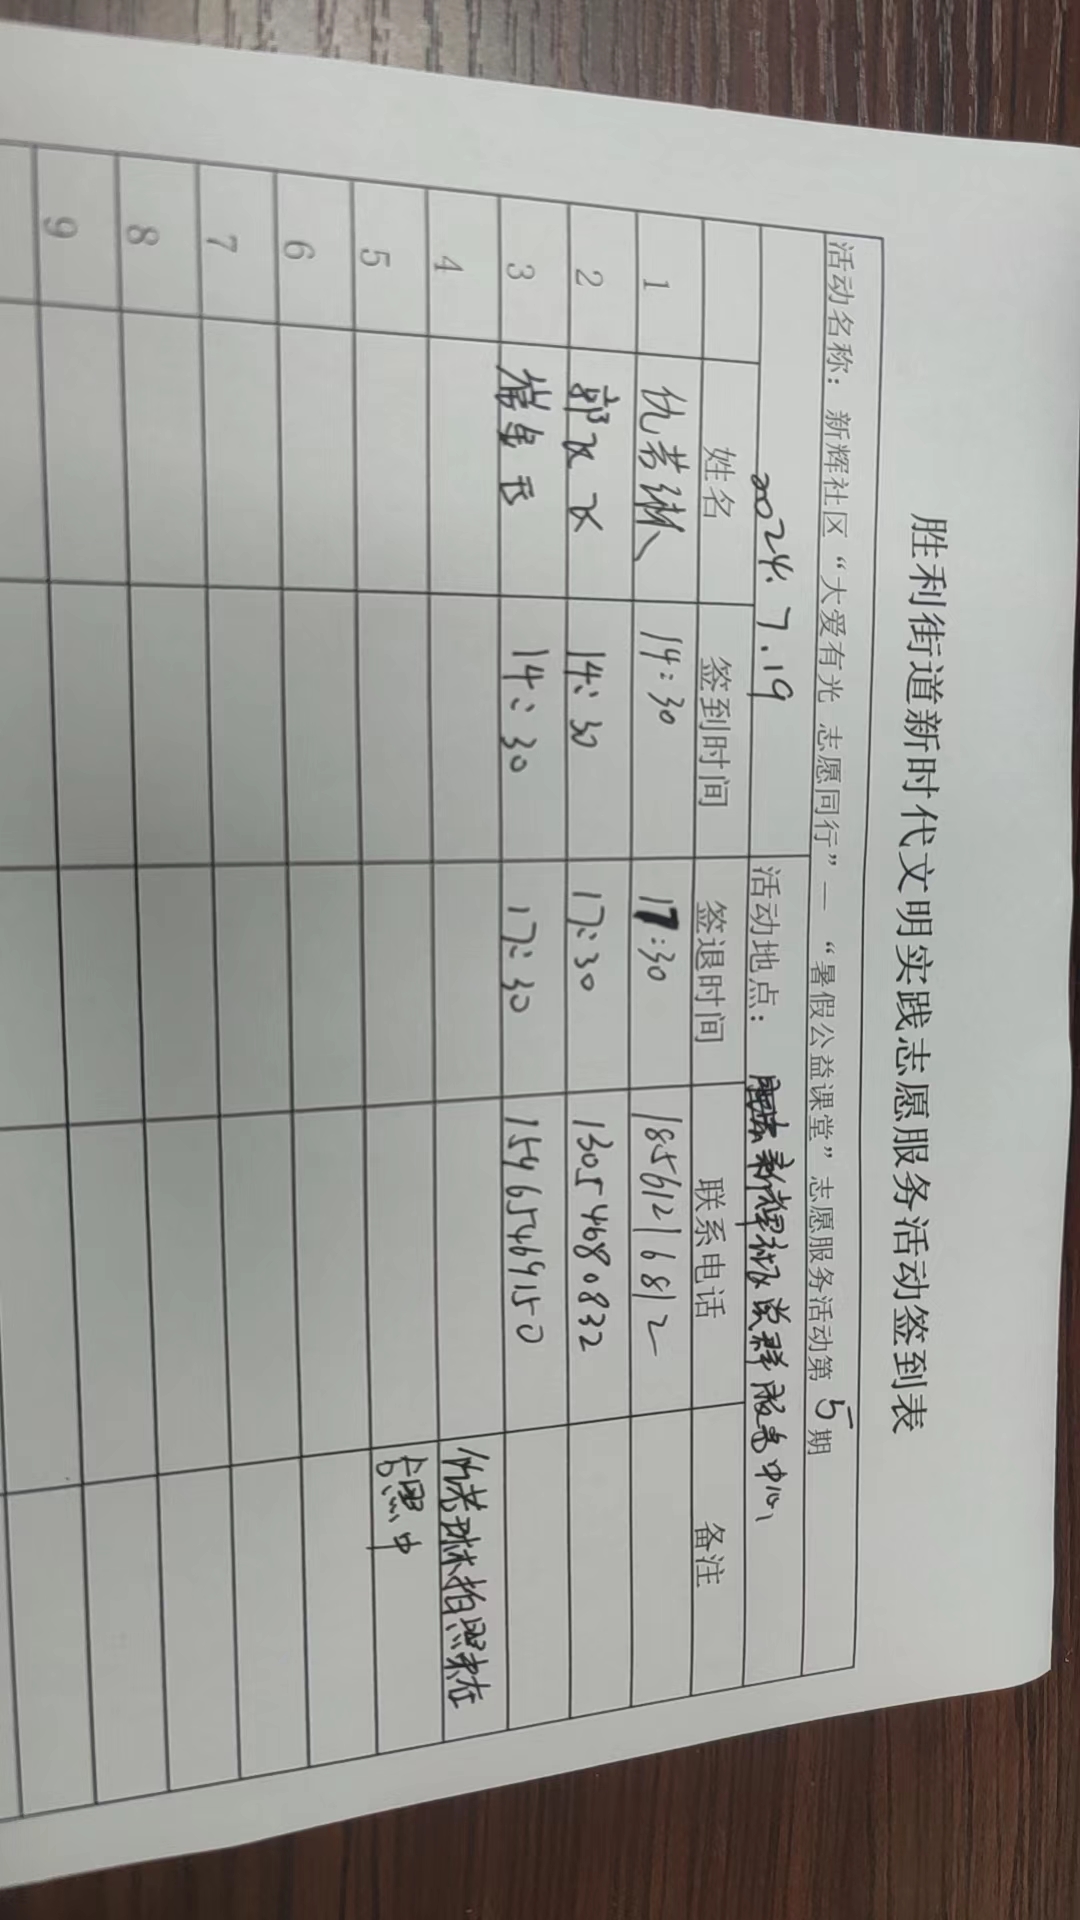 胜利街道新时代文明实践志愿服务活动签到表
活动名称：新辉社区“大爱有光 志愿同行”—“暑假公益课堂”志愿服务活动第5期
2024.7.19 活动地点：新辉社区党群服务中心
姓名 签到时间 签退时间 联系电话 备注
1 仇若琳 14:30 17:30 18561216812
2 郭文文 14:30 17:30 13054680832
3 崔金玉 14:30 17:30 15465469150
4 仇若琳拍照未在
5 合照中
6
7
8
9